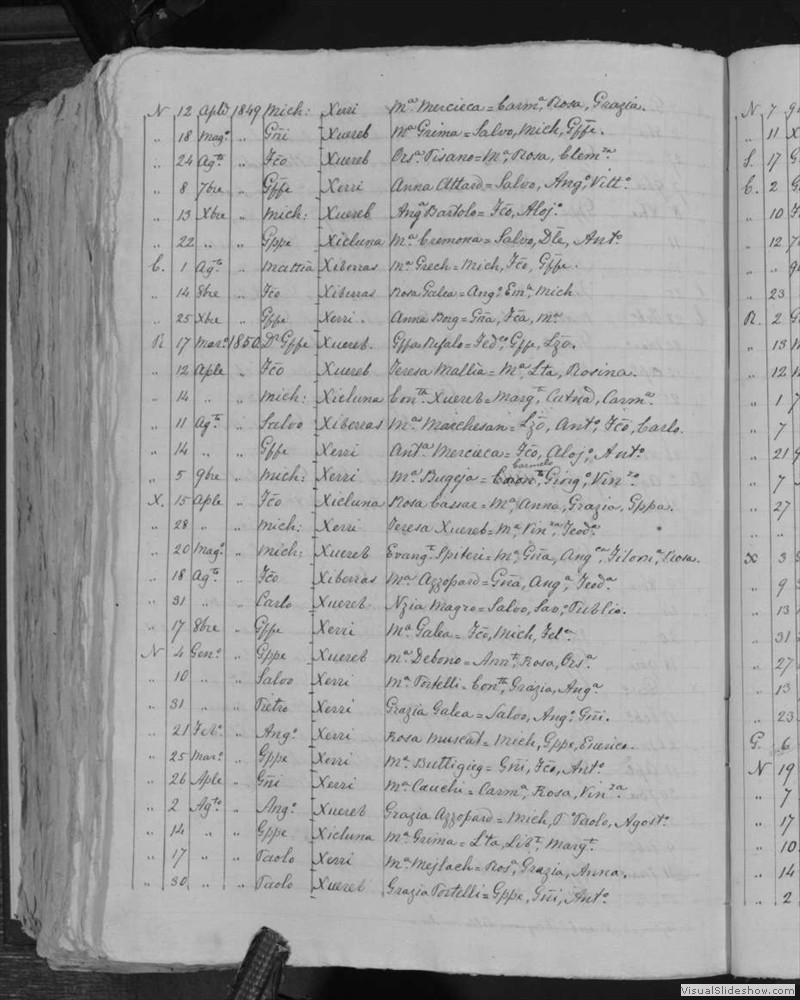 N 12 Aple 1849 Mich: Xerri Mª Mercieca = Carmª, Rosa, Grazia.
„ 18 Magº „ Gñi Xuereb Mª Grima = Salvo, Mich, Gffe.
„ 24 Agto „ Fĉo Xuereb Orsª Pisano = Mª, Rosa, Clemza
„ 8 7bre „ Gffe Xerri Anna Attard = Salvo, Angº, Vittº
„ 13 Xbre „ Mich: Xuereb Angª Bartolo = Fĉo, Alojº
„ 22 „ „ Gppe Xicluna Mª Cremona = Salvo, Dle, Antº
C. 1 Agto „ Mattia Xiberras Mª Grech = Mich, Fĉo, Gffe.
„ 14 8bre „ Fĉo Xiberras Rosa Galea = Angº, Emª, Mich
„ 25 Xbre „ Gffe Xerri. Anna Borg = Gña, Fĉa, Mª
R 17 Marº 1850 Dr Gffe Xuereb. Gffa Refalo = Fedco, Gffe, Lzo.
„ 12 Aple „ Fĉo Xuereb Teresa Mallia = Mª, Lta, Rosina.
„ 14 „ „ Mich: Xicluna Conta Xuereb = Margta, Catna, Carmª
„ 11 Agto „ Salvo Xiberras Mª Marchesan = Lzo, Antº, Fĉo, Carlo.
„ 14 „ „ Gffe Xerri Antª Mercieca = Fĉo, Alojº, Antº
„ 5 9bre „ Mich: Xerri Mª Bugeja = Carmelo, Giorgº, Vinzo
X. 15 Aple „ Fĉo Xicluna Rosa Cassar = Mª, Anna, Grazia, Gppa.
„ 28 „ „ Mich: Xerri Teresa Xuereb = Mª, Vinza, Teodª
„ 20 Magº „ Mich: Xuereb Evangta Spiteri = Mª, Gña, Angca, Filomª, Rosa.
„ 18 Agto „ Fĉo Xiberras Mª Azzopard = Gña, Angª, Teodª
„ 31 „ „ Carlo Xuereb Nzia Magro = Salvo, Savº, Publio.
„ 17 8bre „ Gffe Xerri Mª Galea = Fĉo, Mich, Felª
N 4 Genº „ Gppe Xuereb Mª Debono = Annta, Rosa, Orsª
„ 10 „ „ Salvo Xerri Mª Portelli = Conta, Grazia, Angª
„ 31 „ „ Pietro Xerri Grazia Galea = Salvo, Angº, Gñi.
„ 21 Febº „ Angº Xerri Rosa Muscat = Mich, Gppe, Enrico.
„ 25 Marº „ Gppe Xerri Mª Buttigieg = Gñi, Fĉo, Antº
„ 26 Aple „ Gñi Xerri Mª Cauchi = Carmª, Rosa, Vinza
„ 2 Agto „ Angº Xuereb Grazia Azzopard = Mich, Paolo, Agostº
„ 14 „ „ Gppe Xicluna Mª Grima = Lta, Libta, Margta
„ 17 „ „ Paolo Xerri Mª Mejlach = Rosª, Grazia, Anna.
„ 30 „ „ Paolo Xuereb Grazia Portelli = Gppe, Gñi, Antº
N 7
„ 11
S. 17
C. 2
„ 10
„ 12
„ „
„ 23
R. 2
„ 13
„ 12
„ 1
„ 7
„ 21
„ 7
„ 27
„ „
X 3
„ 9
„ 13
„ 31
„ 27
„ 13
„ 23
G. 6
N 19
„ 7
„ 17
„ 10
„ 14
„ 2
VisualSlideshow.com